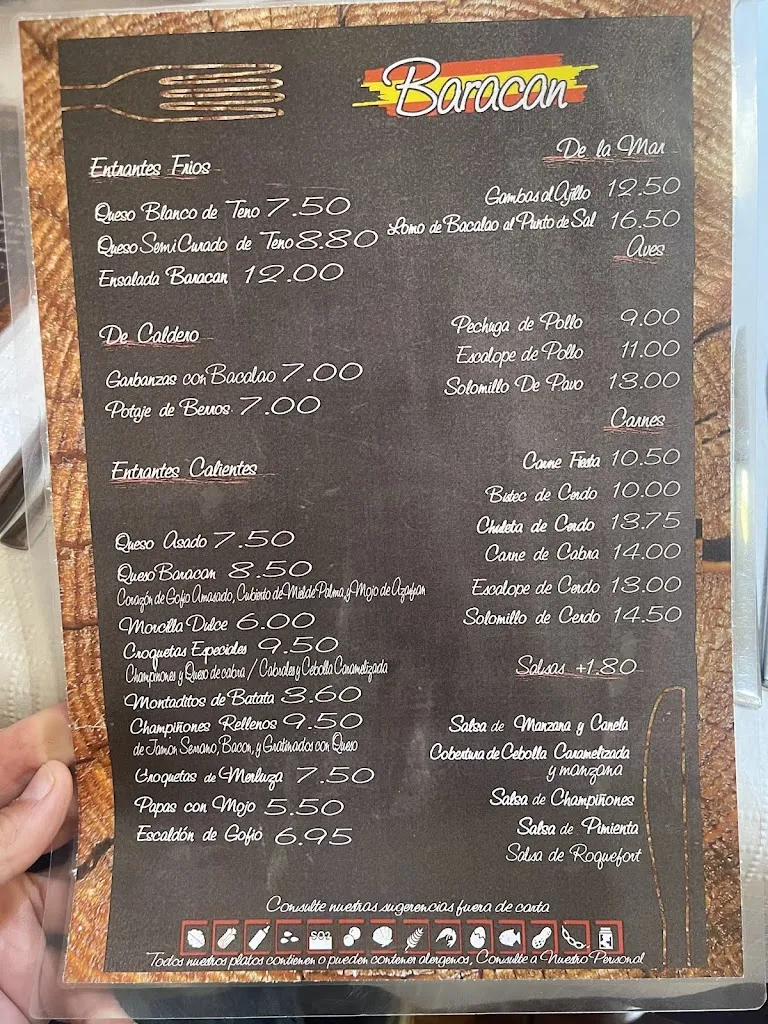 Baracan
Entrantes Frios
Queso Blanco de Teno 7.50
Queso Semi Curado de Teno 8.80
Ensalada Baracan 12.00
De Caldero
Garbanzas con Bacalao 7.00
Potaje de Berros 7.00
Entrantes Calientes
Queso Asado 7.50
Queso Baracan 8.50
Corazón de Gofio Amasado, Cubierto de Miel de Palma, y Mojo de Azafran
Morcilla Dulce 6.00
Croquetas Especiales 9.50
Champiñones y Queso de cabra / Cabrales y Cebolla Caramelizada
Montaditos de Batata 3.60
Champiñones Rellenos 9.50
de Jamon Serrano, Bacon, y Gratinados con Queso
Croquetas de Merluza 7.50
Papas con Mojo 5.50
Escaldón de Gofio 6.95
De la Mar
Gambas al Ajillo 12.50
Lomo de Bacalao al Punto de Sal 16.50
Aves
Pechuga de Pollo 9.00
Escalope de Pollo 11.00
Solomillo De Pavo 13.00
Carnes
Carne Fiesta 10.50
Bistec de Cerdo 10.00
Chuleta de Cerdo 13.75
Carne de Cabra 14.00
Escalope de Cerdo 13.00
Solomillo de Cerdo 14.50
Salsas +1.80
Salsa de Manzana y Canela
Cobertura de Cebolla Caramelizada
y manzana
Salsa de Champiñones
Salsa de Pimienta
Salsa de Roquefort
Consulte nuestras sugerencias fuera de carta
SO2
Todos nuestros platos contienen o pueden contener alergenos, Consulte a Nuestro Personal